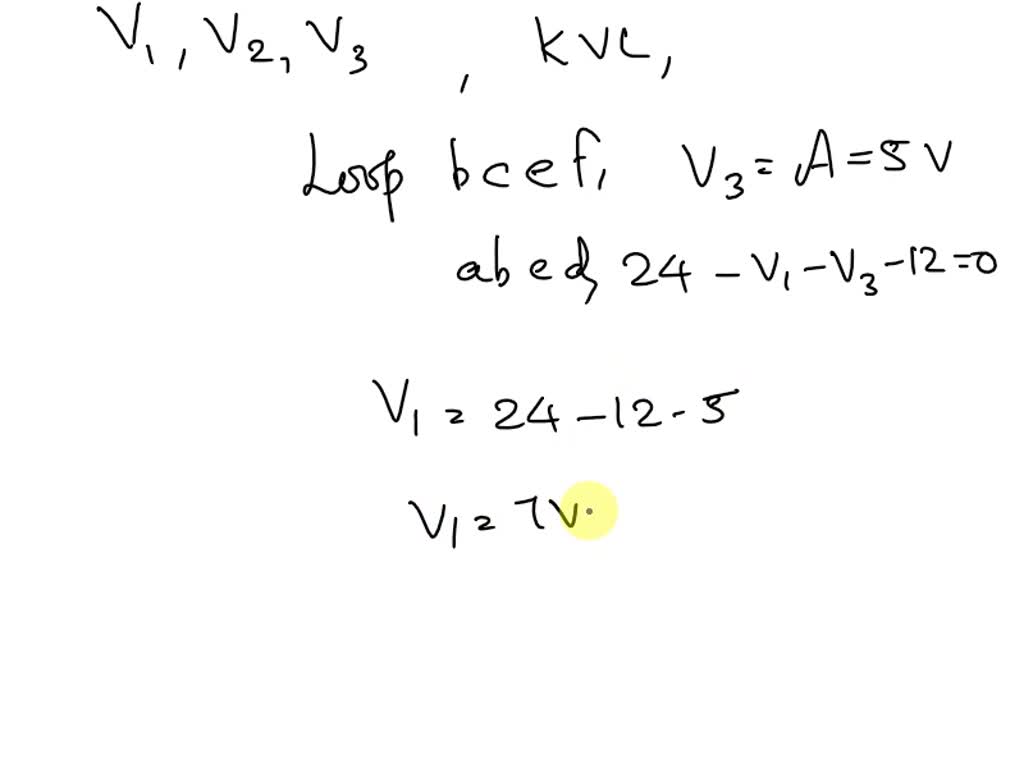 V₁, V₂, V₃, KVL,
Loop bcef, V₃ = A = 5 V
abed, 24 - V₁ - V₃ - 12 = 0
V₁ = 24 - 12 - 5
V₁ = 7V.